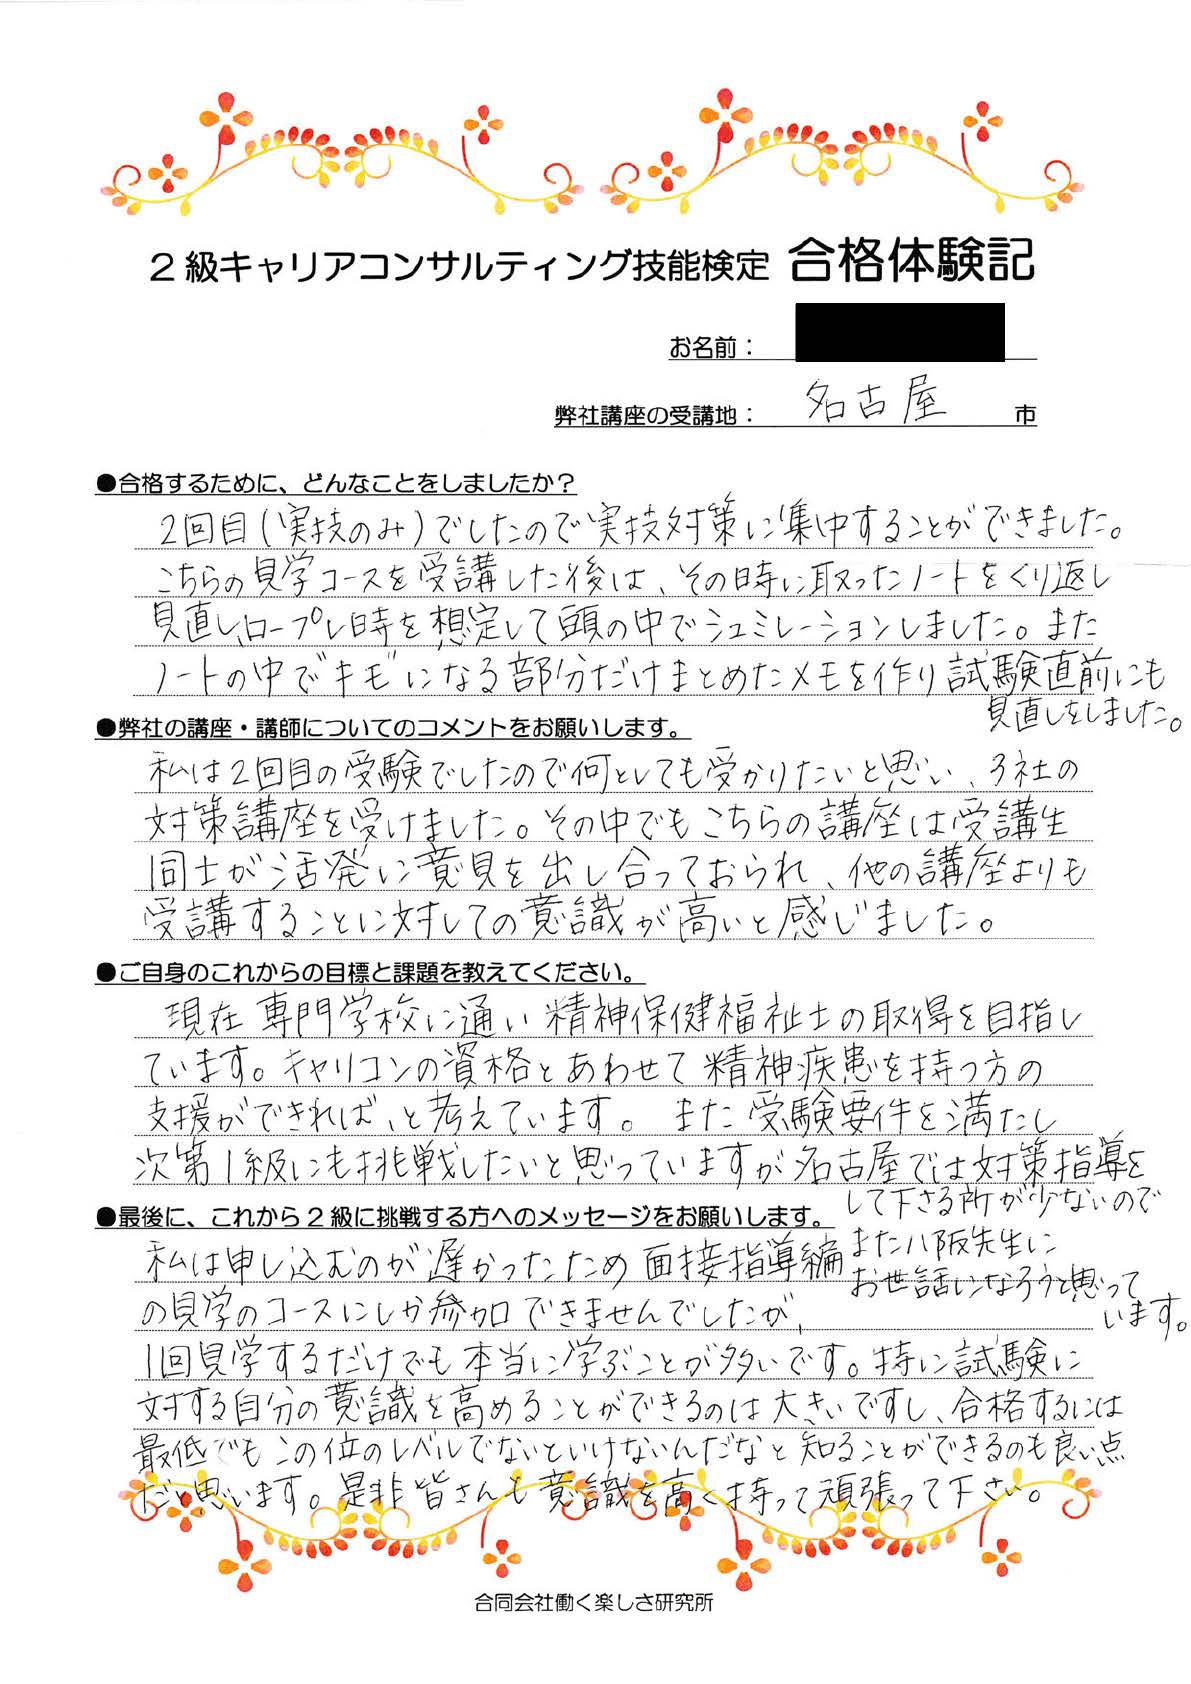 2級キャリアコンサルティング技能検定 合格体験記
お名前：
弊社講座の受講地： 名古屋 市
●合格するために、どんなことをしましたか？
2回目(実技のみ)でしたので実技対策に集中することができました。
こちらの見学コースを受講した後は、その時に取ったノートをくり返し
見直し、ロープレ時を想定して頭の中でシュミレーションしました。また
ノートの中でキモになる部分だけまとめたメモを作り試験直前にも
見直しをしました。
●弊社の講座・講師についてのコメントをお願いします。
私は2回目の受験でしたので何としても受かりたいと思い、3社の
対策講座を受けました。その中でもこちらの講座は受講生
同士が活発に意見を出し合っておられ、他の講座よりも
受講することに対しての意識が高いと感じました。
●ご自身のこれからの目標と課題を教えてください。
現在専門学校に通い精神保健福祉士の取得を目指し
ています。キャリコンの資格とあわせて精神疾患を持つ方の
支援ができれば、と考えています。また受験要件を満たし
次第1級にも挑戦したいと思っていますが名古屋では対策指導を
して下さる所が少ないので
また八阪先生に
お世話になろうと思って
います。
●最後に、これから2級に挑戦する方へのメッセージをお願いします。
私は申し込むのが遅かったため面接指導編
の見学のコースにしか参加できませんでしたが、
1回見学するだけでも本当に学ぶことが多いです。特に試験に
対する自分の意識を高めることができるのは大きいですし、合格するには
最低でもこの位のレベルでないといけないんだなと知ることができるのも良い点
だと思います。是非皆さんも意識を高く持って頑張って下さい。
合同会社働く楽しさ研究所